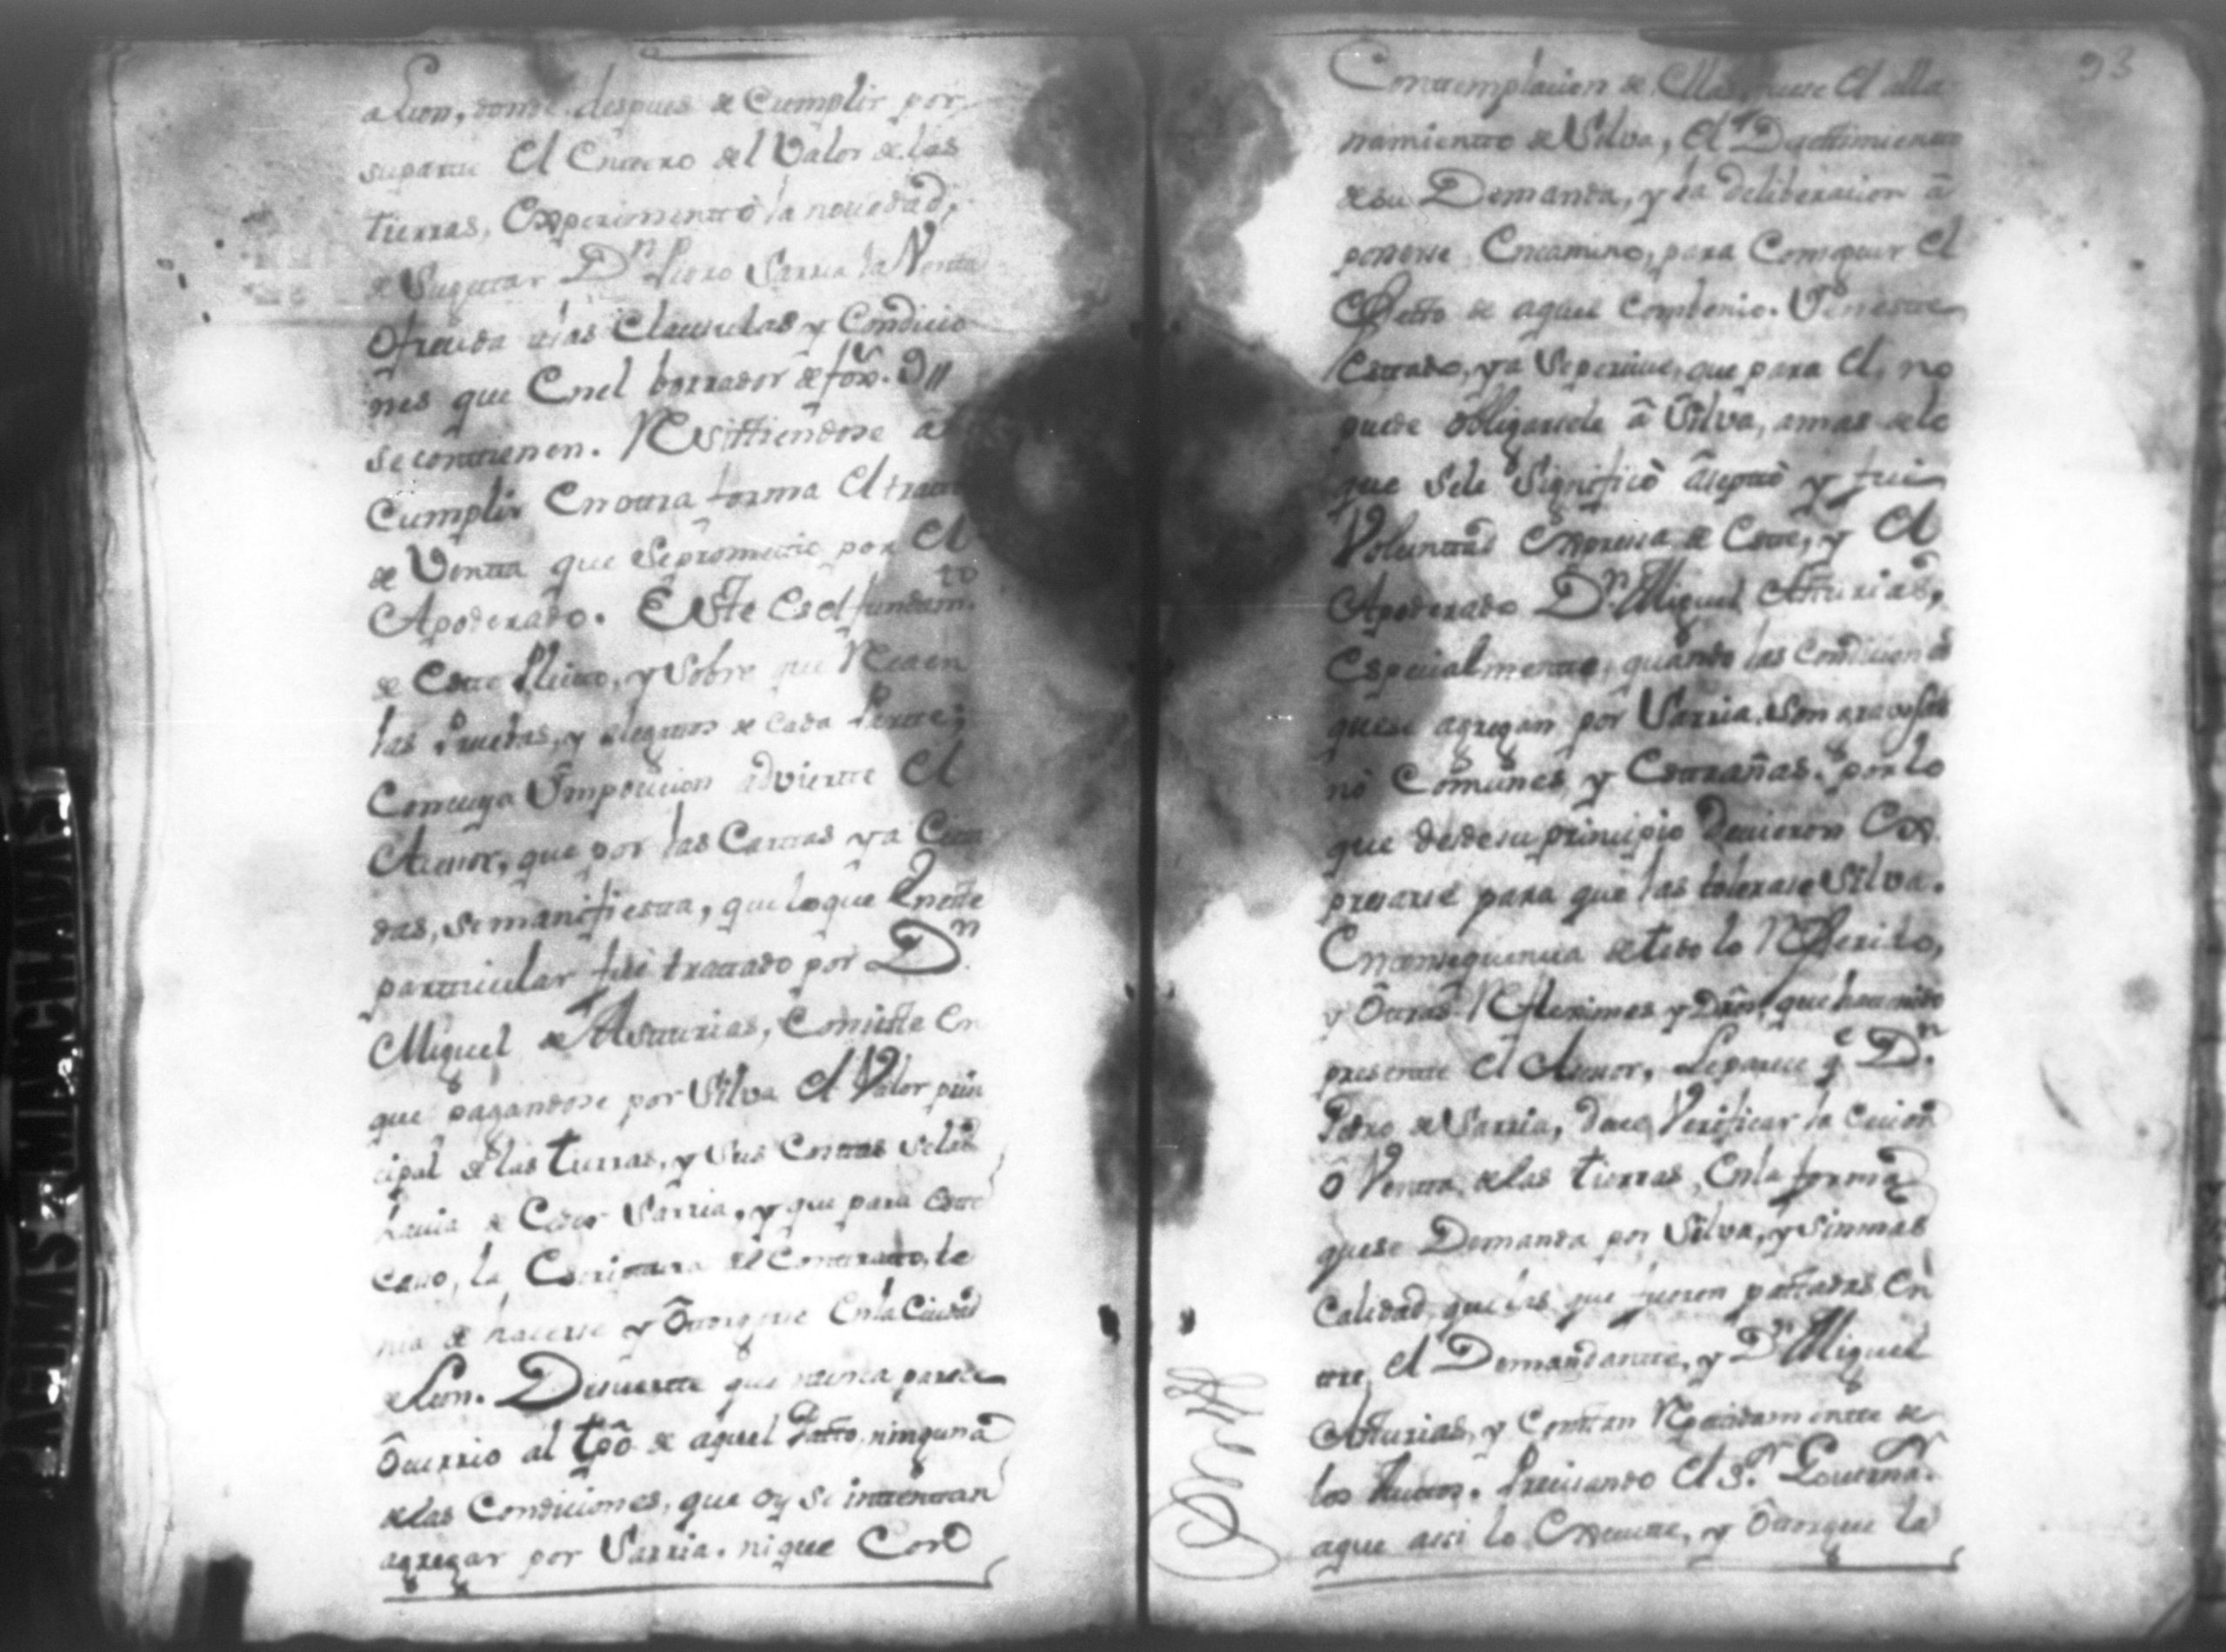 a Leon, donde despues de Cumplir por
su parte El Entero del Valor de las
tierras, Experimentò la novedad,
de Sugetar Dn. Pedro Sarria la Venta
Ofrecida a las Clausulas y Condicio
nes que Enel borrador de fox. 9
se contienen. Resistiendose â
Cumplir En otra forma El trato
de Venta que Seprometio por El
Apoderado. Este Es el fundamto.
de Este Pleito, y Sobre que Recaen
las Pruebas, y alegatos de cada Parte;
Con cuya Imposicion advierte El
Asesor, que por las Cartas ya Cita
das, se manifiesta, que loque Eneste
particular fue tratado por Dn.
Miguel de Asturias, Consiste En
que pagandose por Silva El Valor prin
cipal de las tierras, y Sus Costas Selas
havia de Ceder Sarria, y que para Este
Caso, la Escriptura del Contrato, te
nia de hacerse y Otorgarse Enla Ciudad
de Leon. De suerte que nunca parece
Ocurrio al tpô de aquel Patto, ninguna
de las Condiciones, que oy se intentan
agregar por Sarria. ni que Con
93
Contemplacion de Ellas, fuese El alla
namiento de Silva, El Desistimiento
de su Demanda, y la deliberacion â
ponerse Encamino, para Conseguir El
Efetto de aquel Combenio. En este
Estado, ya Sepercive, que para El, no
puede obligarsele â Silva, a mas dele
que Sele Significò âseptò y fue
Voluntad Expresa de Este, y El
Apoderado Dn. Miguel Asturias,
Especialmente, quando las Condiciones
quese agregan por Sarria, Son gravosas
no Comunes y Estrañas. por lo
que desde su principio devieron Ex
presarse para que las tolerase Silva.
En consequencia de todo lo Referido,
y Otras Reflexiones y que ha tenido
presente El Asesor, Leparece q.e Dn.
Pedro de Sarria, deve Verificar la Cecion
ô Venta de las tierras, Enla forma
quese Demanda por Silva, y sin mas
Calidad, que las que fueron pattadas En
tre El Demandante, y Dn. Miguel
Asturias, y Constan Repetidamente de
los Autos. Precisando El Sr. Governa.r
a que assi lo Execute, y Otorgue la